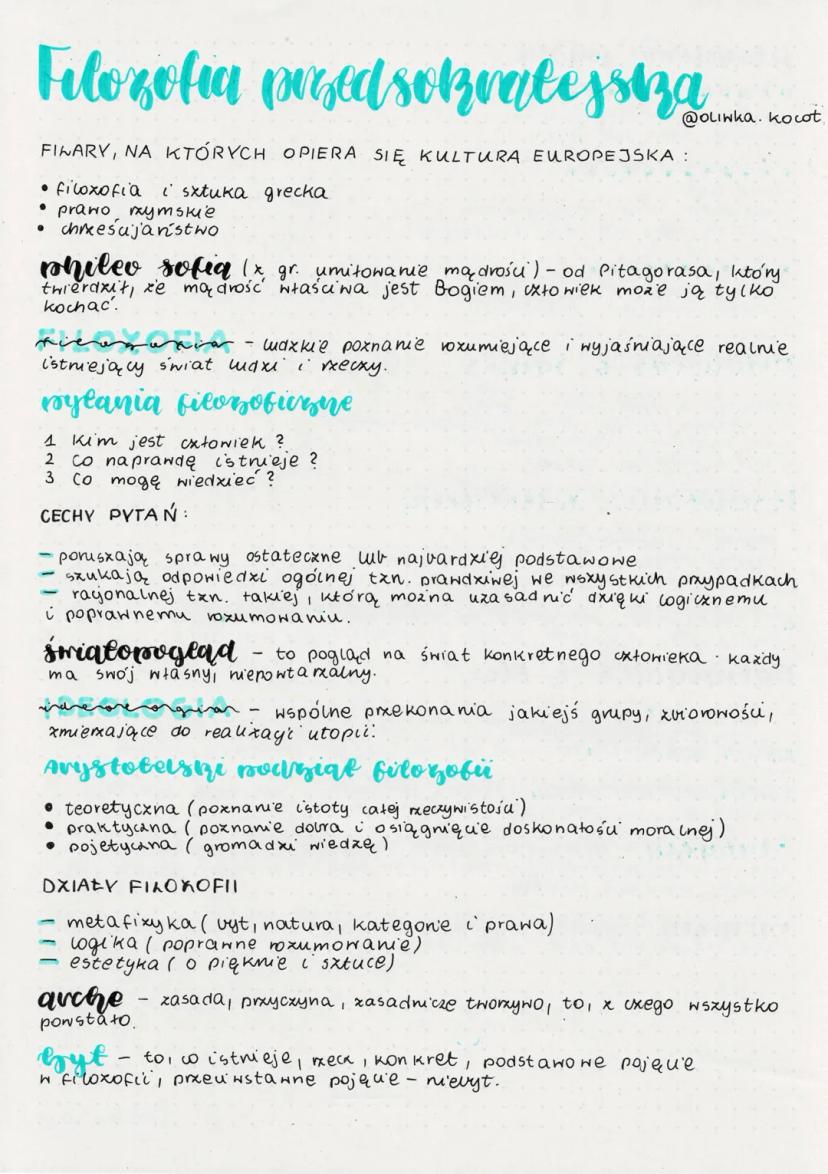 Filozofia przedsokratejska
@oliwka.kocot
FILARY, NA KTÓRYCH OPIERA SIĘ KULTURA EUROPEJSKA:
• filozofia i sztuka grecka
• prawo rzymskie
• chrześcijaństwo
phileo sofia (z gr. umiłowanie mądrości) – od Pitagorasa, który
twierdził, że mądrość właściwa jest Bogiem, człowiek może ją tylko
kochać.
FILOZOFIA – ludzkie poznanie rozumiejące i wyjaśniające realnie
istniejący świat ludzi i rzeczy.
pytania filozoficzne
1 Kim jest człowiek?
2 Co naprawdę istnieje?
3 Co mogę wiedzieć?
CECHY PYTAŃ:
– poruszają sprawy ostateczne lub najbardziej podstawowe
– szukają odpowiedzi ogólnej tzn. prawdziwej we wszystkich przypadkach
– racjonalnej tzn. takiej, którą można uzasadnić dzięki logicznemu
i poprawnemu rozumowaniu.
światopogląd – to pogląd na świat konkretnego człowieka. każdy
ma swój własny, niepowtarzalny.
IDEOLOGIA – wspólne przekonania jakiejś grupy, zbiorowości,
zmierzające do realizacji utopii.
Arystotelski podział filozofii
• teoretyczna (poznanie istoty całej rzeczywistości)
• praktyczna (poznanie dobra i osiągnięcie doskonałości moralnej)
• pojetyczna (gromadzi wiedzę)
DZIAŁY FILOZOFII
– metafizyka (byt, natura, kategorie i prawa)
– logika (poprawne rozumowanie)
– estetyka (o pięknie i sztuce)
arche – zasada, przyczyna, zasadnicze tworzywo, to, z czego wszystko
powstało.
byt – to, co istnieje, rzecz, konkret, podstawowe pojęcie
w filozofii, przeciwstawne pojęcie – niebyt.